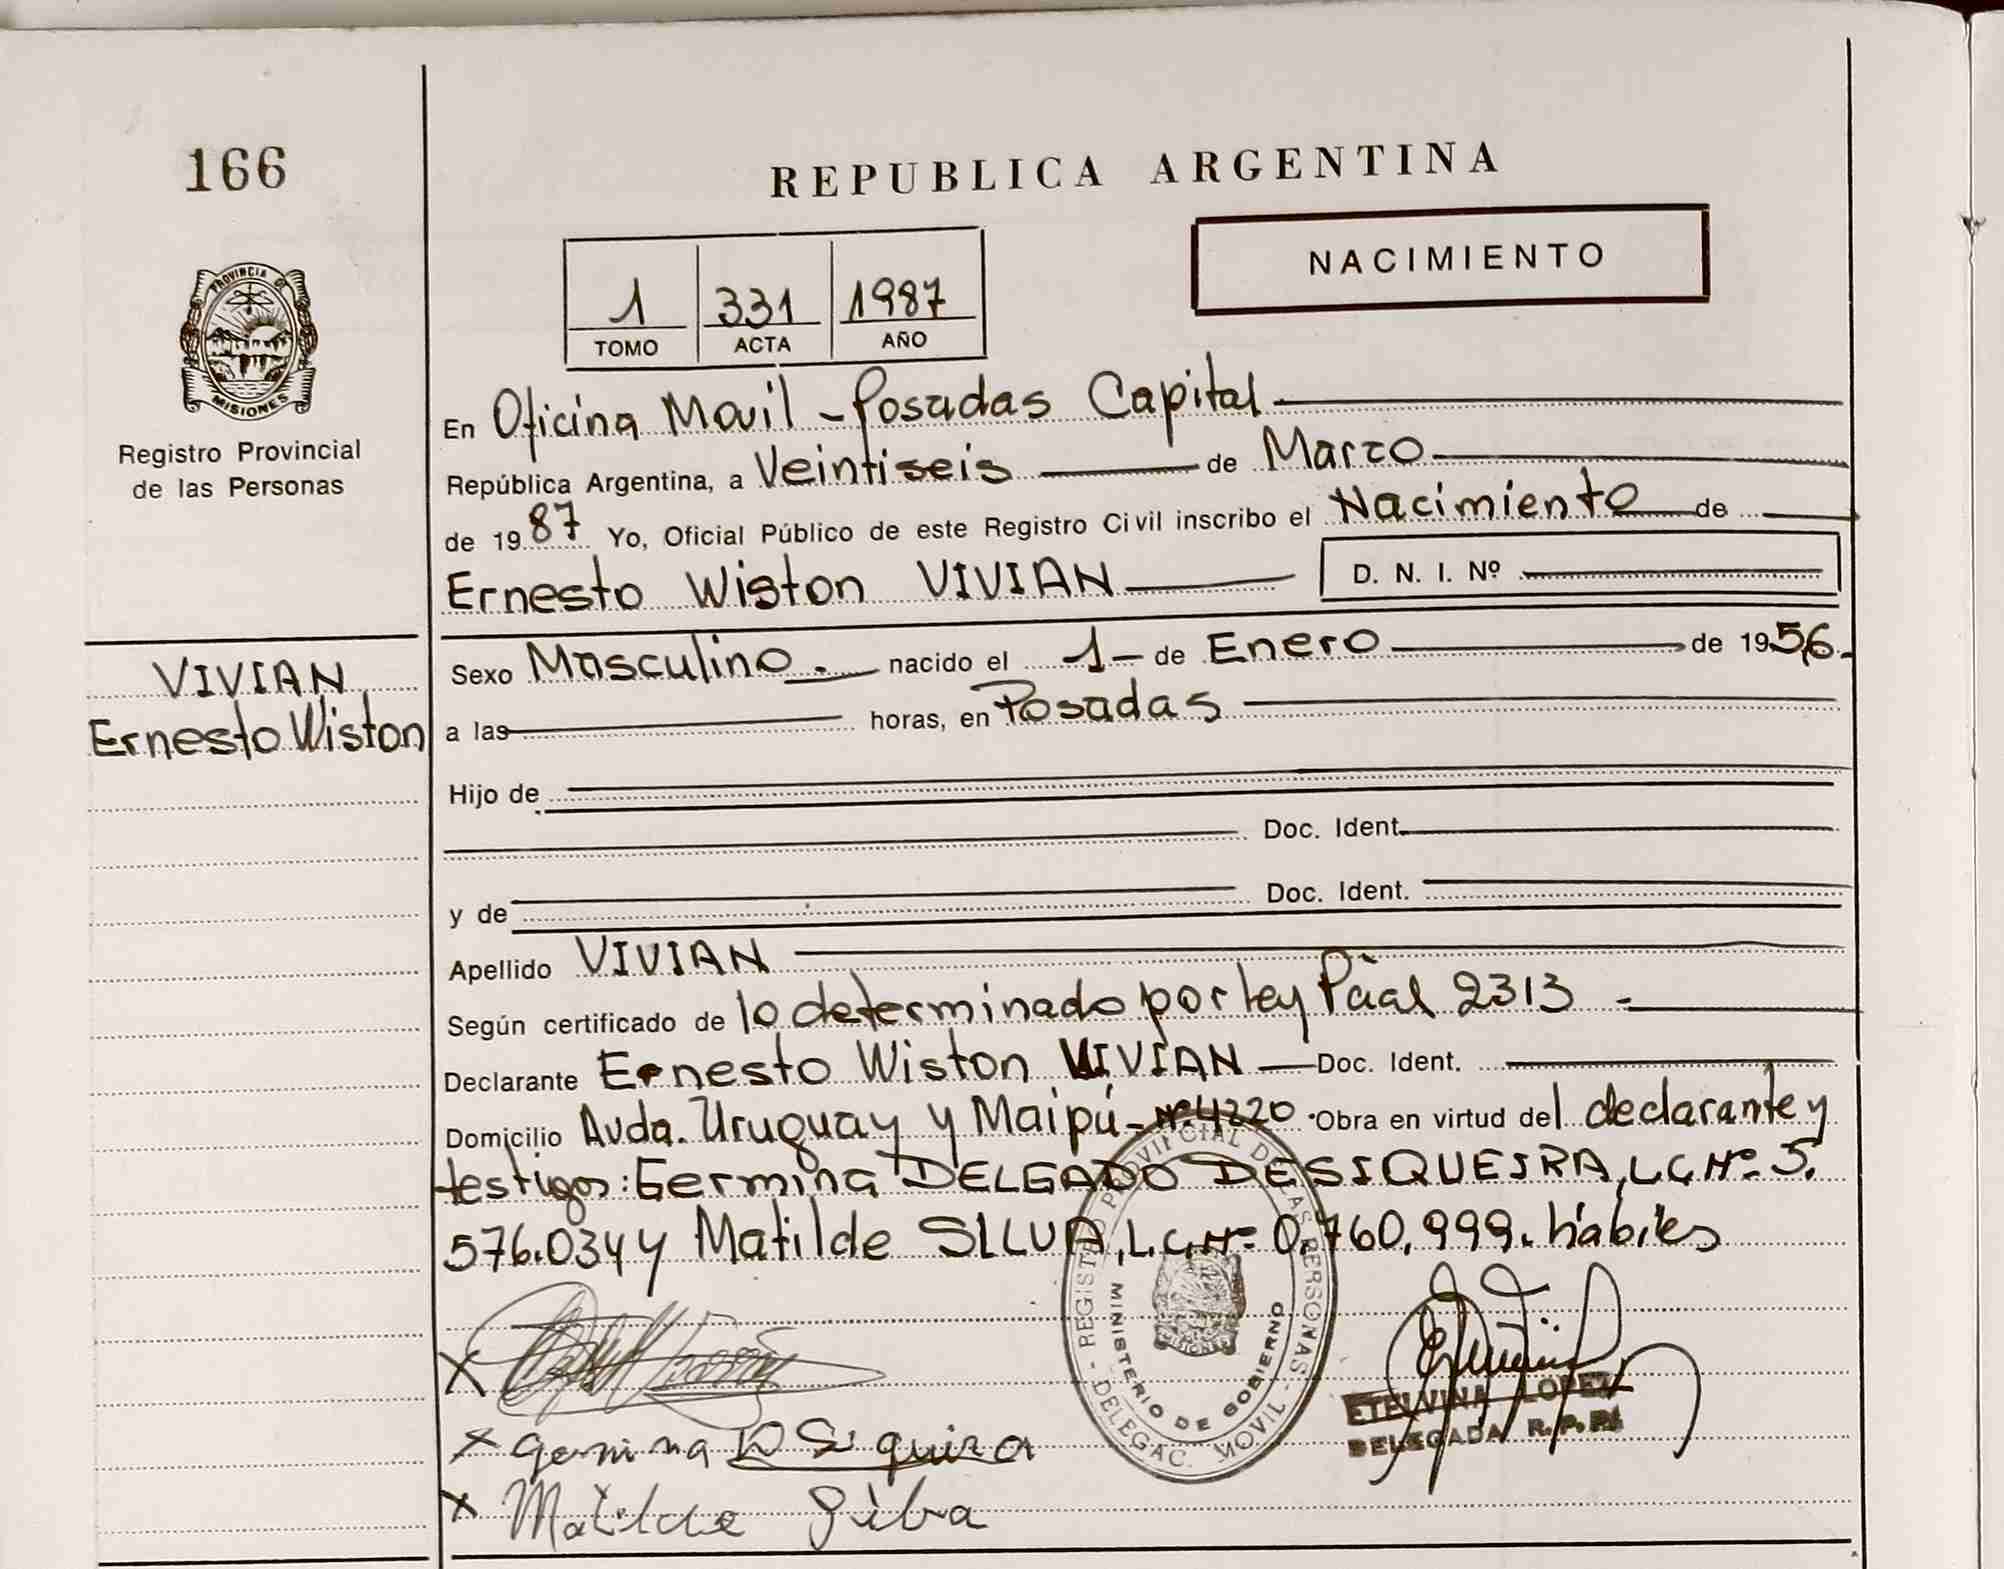 166
REPUBLICA ARGENTINA
NACIMIENTO
1 331 1987
TOMO ACTA AÑO
PROVINCIA DE
MISIONES
Registro Provincial
de las Personas
En Oficina Movil - Posadas Capital
República Argentina, a Veintiseis de Marzo
de 1987 Yo, Oficial Público de este Registro Civil inscribo el Nacimiento de
Ernesto Wiston VIVIAN D. N. I. Nº
VIVIAN
Ernesto Wiston
Sexo Masculino. nacido el 1- de Enero de 1956.
a las horas, en Posadas
Hijo de
Doc. Ident.
y de Doc. Ident.
Apellido VIVIAN
Según certificado de lo determinado por ley Pcial 2313 -
Declarante Ernesto Wiston VIVIAN Doc. Ident.
Domicilio Avda. Uruguay y Maipú - Nº 4220 Obra en virtud del declarante y
testigos: Germina DELGADO DE SIQUEIRA, L.C. Nº 5.
576.034 y Matilde SILVA, L.C. Nº 0,760,999. hábiles
REGISTRO PROVINCIAL DE LAS PERSONAS - DELEGAC. MOVIL -
MINISTERIO DE GOBIERNO
MISIONES
ETELVINA LOPEZ
DELEGADA R. P. P.
X
X Germina D Siquira
X Matilde Silva